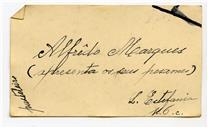 Alfrêdo Marques
(apresenta os seus pesames)
L. Estefania